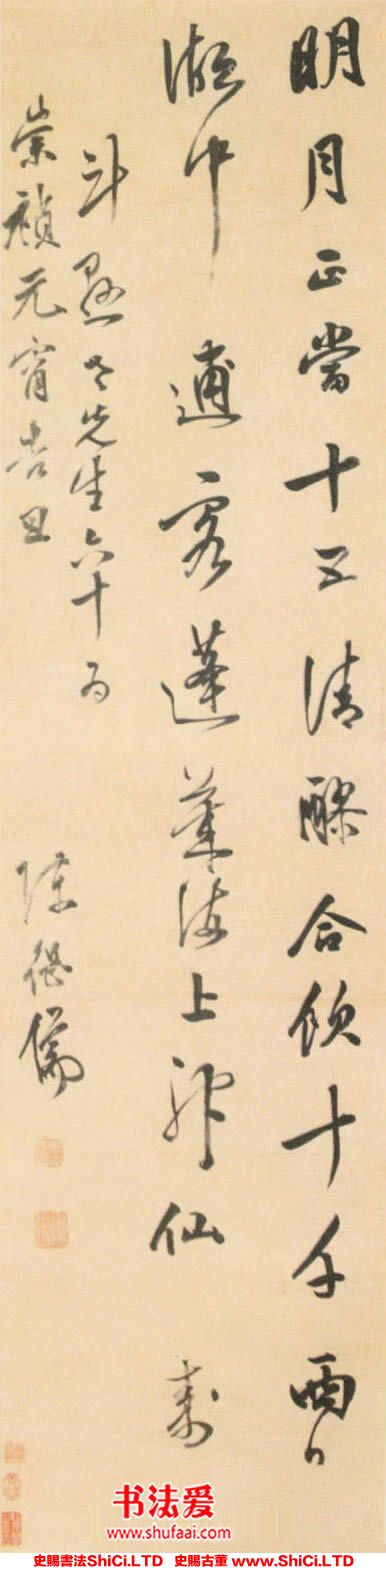 明月正當十五清醪合飲十千
湖中逋客蓬萊海上神仙 壽
斗老先生六十
崇禎元宵吉旦 陳繼儒
书法爱
www.shufaai.com
史賜書法ShiCi.LTD 史賜古董 www.ShiCi.LTD